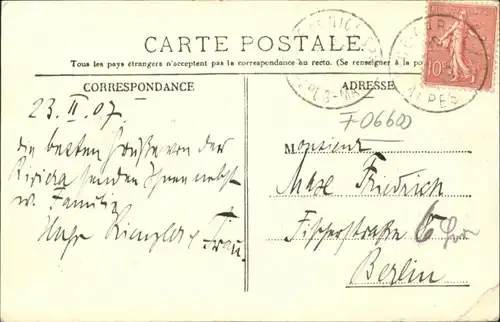 CARTE POSTALE.
Tous les pays étrangers n'acceptent pas la correspondance au recto. (Se renseigner à la
CORRESPONDANCE
ADRESSE
23. II. 07.
Die besten Grüße von der
Riviera senden Ihnen nebst
w. Familie
Hugo
Frau.
F06600
Monsieur
Max Friedrich
Fischerstraße 6
Berlin
10
ALPES